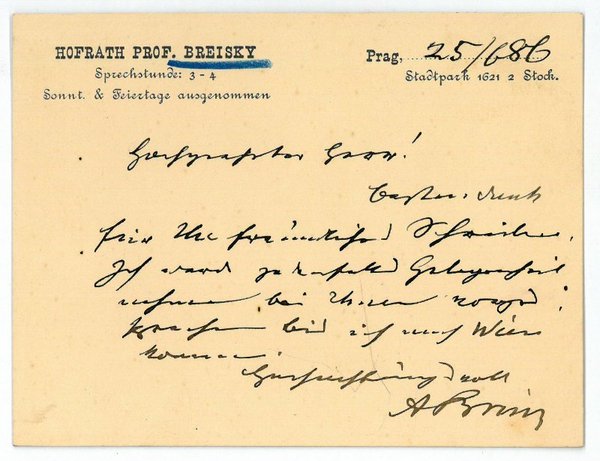 HOFRATH PROF. BREISKY
Sprechstunde: 3 - 4
Sonnt. & Feiertage ausgenommen
Prag, 25/6 86
Stadtpark 1621 2 Stock.
Hochgeehrter Herr!
Besten Dank
für Ihr freundliches Schreiben.
Ich werde jedenfalls Gelegenheit
nehmen bei Ihnen
bis ich nach Wien
komme
Hochachtungsvoll
ABreisky